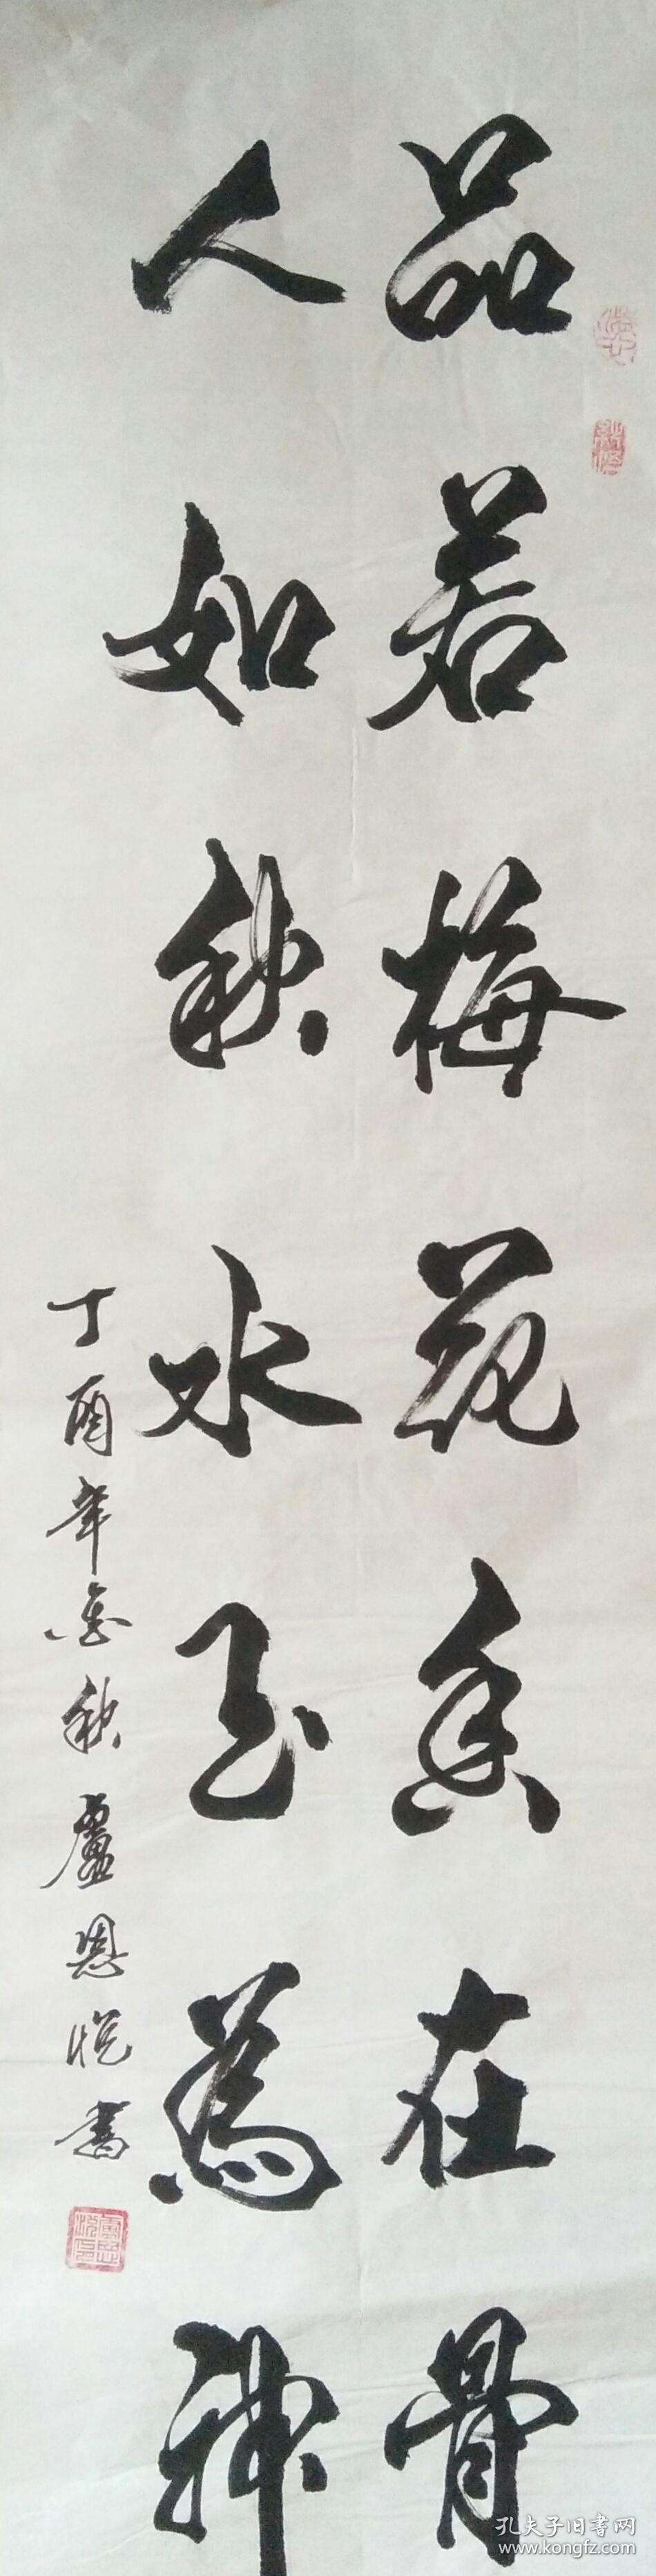 品若梅花香在骨
人如秋水玉為神
丁酉年金秋盧恩悦書
孔夫子旧书网
www.kongfz.com